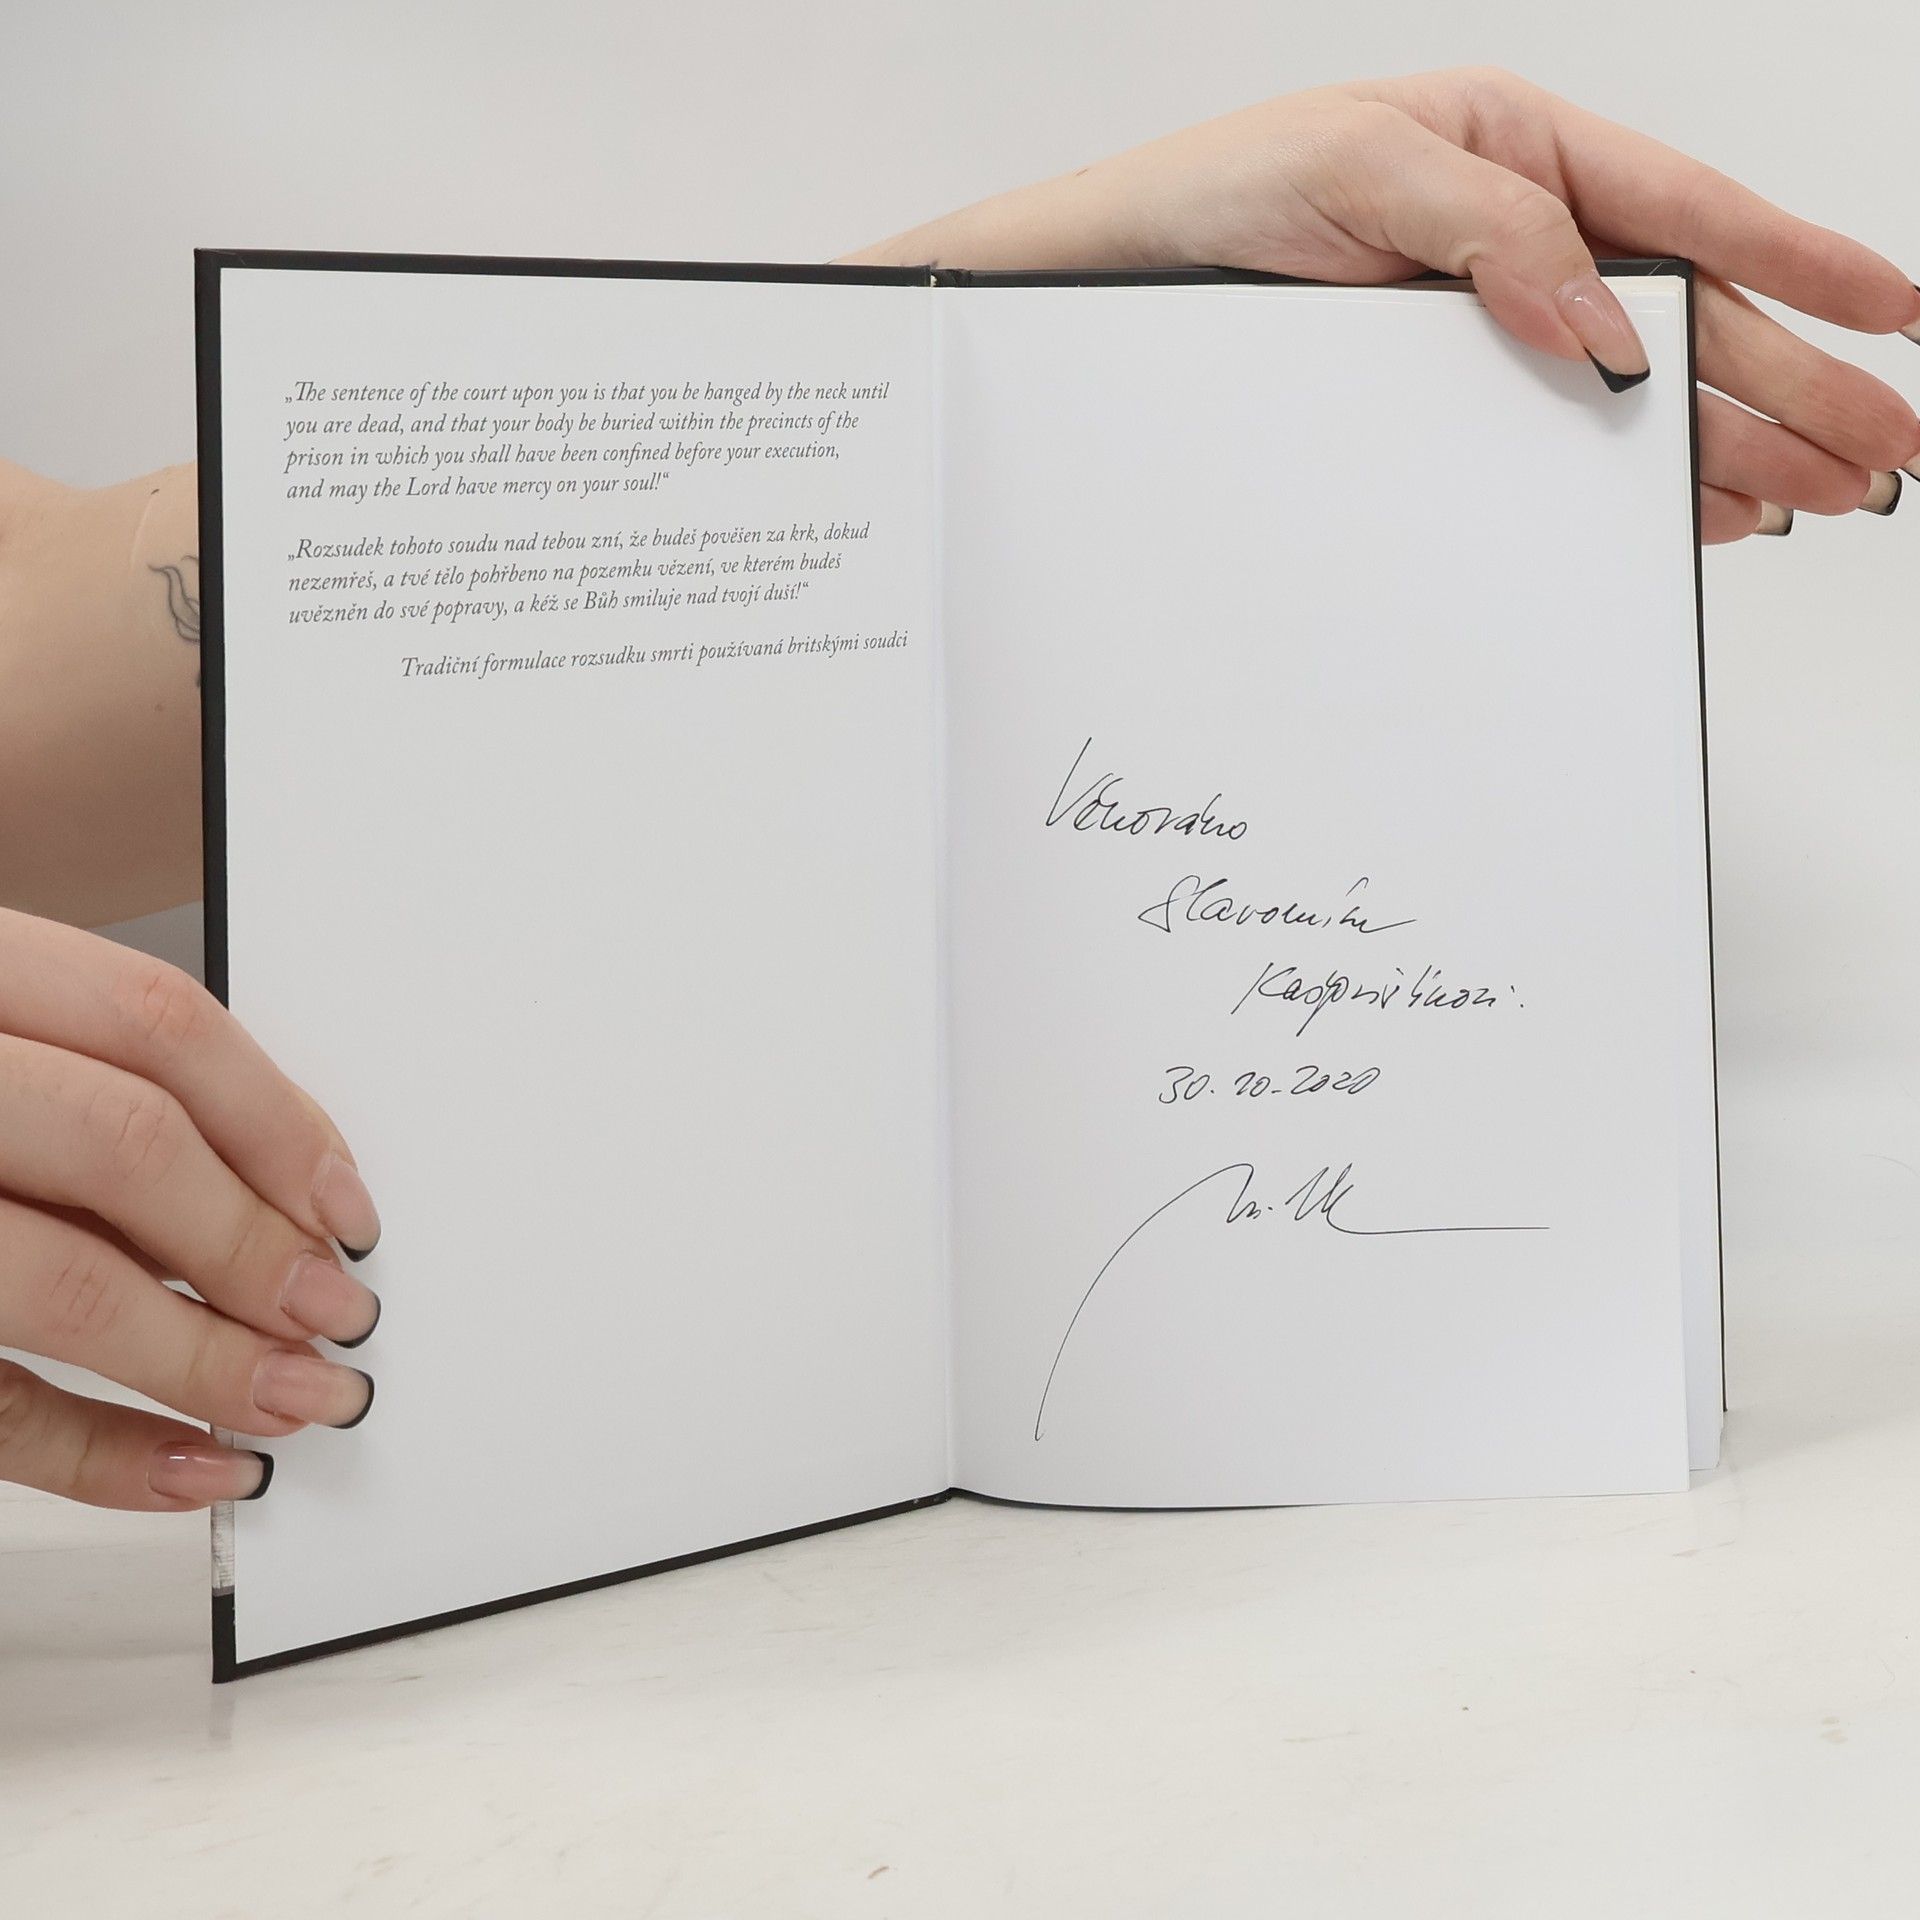 „The sentence of the court upon you is that you be hanged by the neck until
you are dead, and that your body be buried within the precincts of the
prison in which you shall have been confined before your execution,
and may the Lord have mercy on your soul!“
„Rozsudek tohoto soudu nad tebou zní, že budeš pověšen za krk, dokud
nezemřeš, a tvé tělo pohřbeno na pozemku vězení, ve kterém budeš
uvězněn do své popravy, a kéž se Bůh smiluje nad tvojí duší!“
Tradiční formulace rozsudku smrti používaná britskými soudci
Věnováno
30. 10. 2020